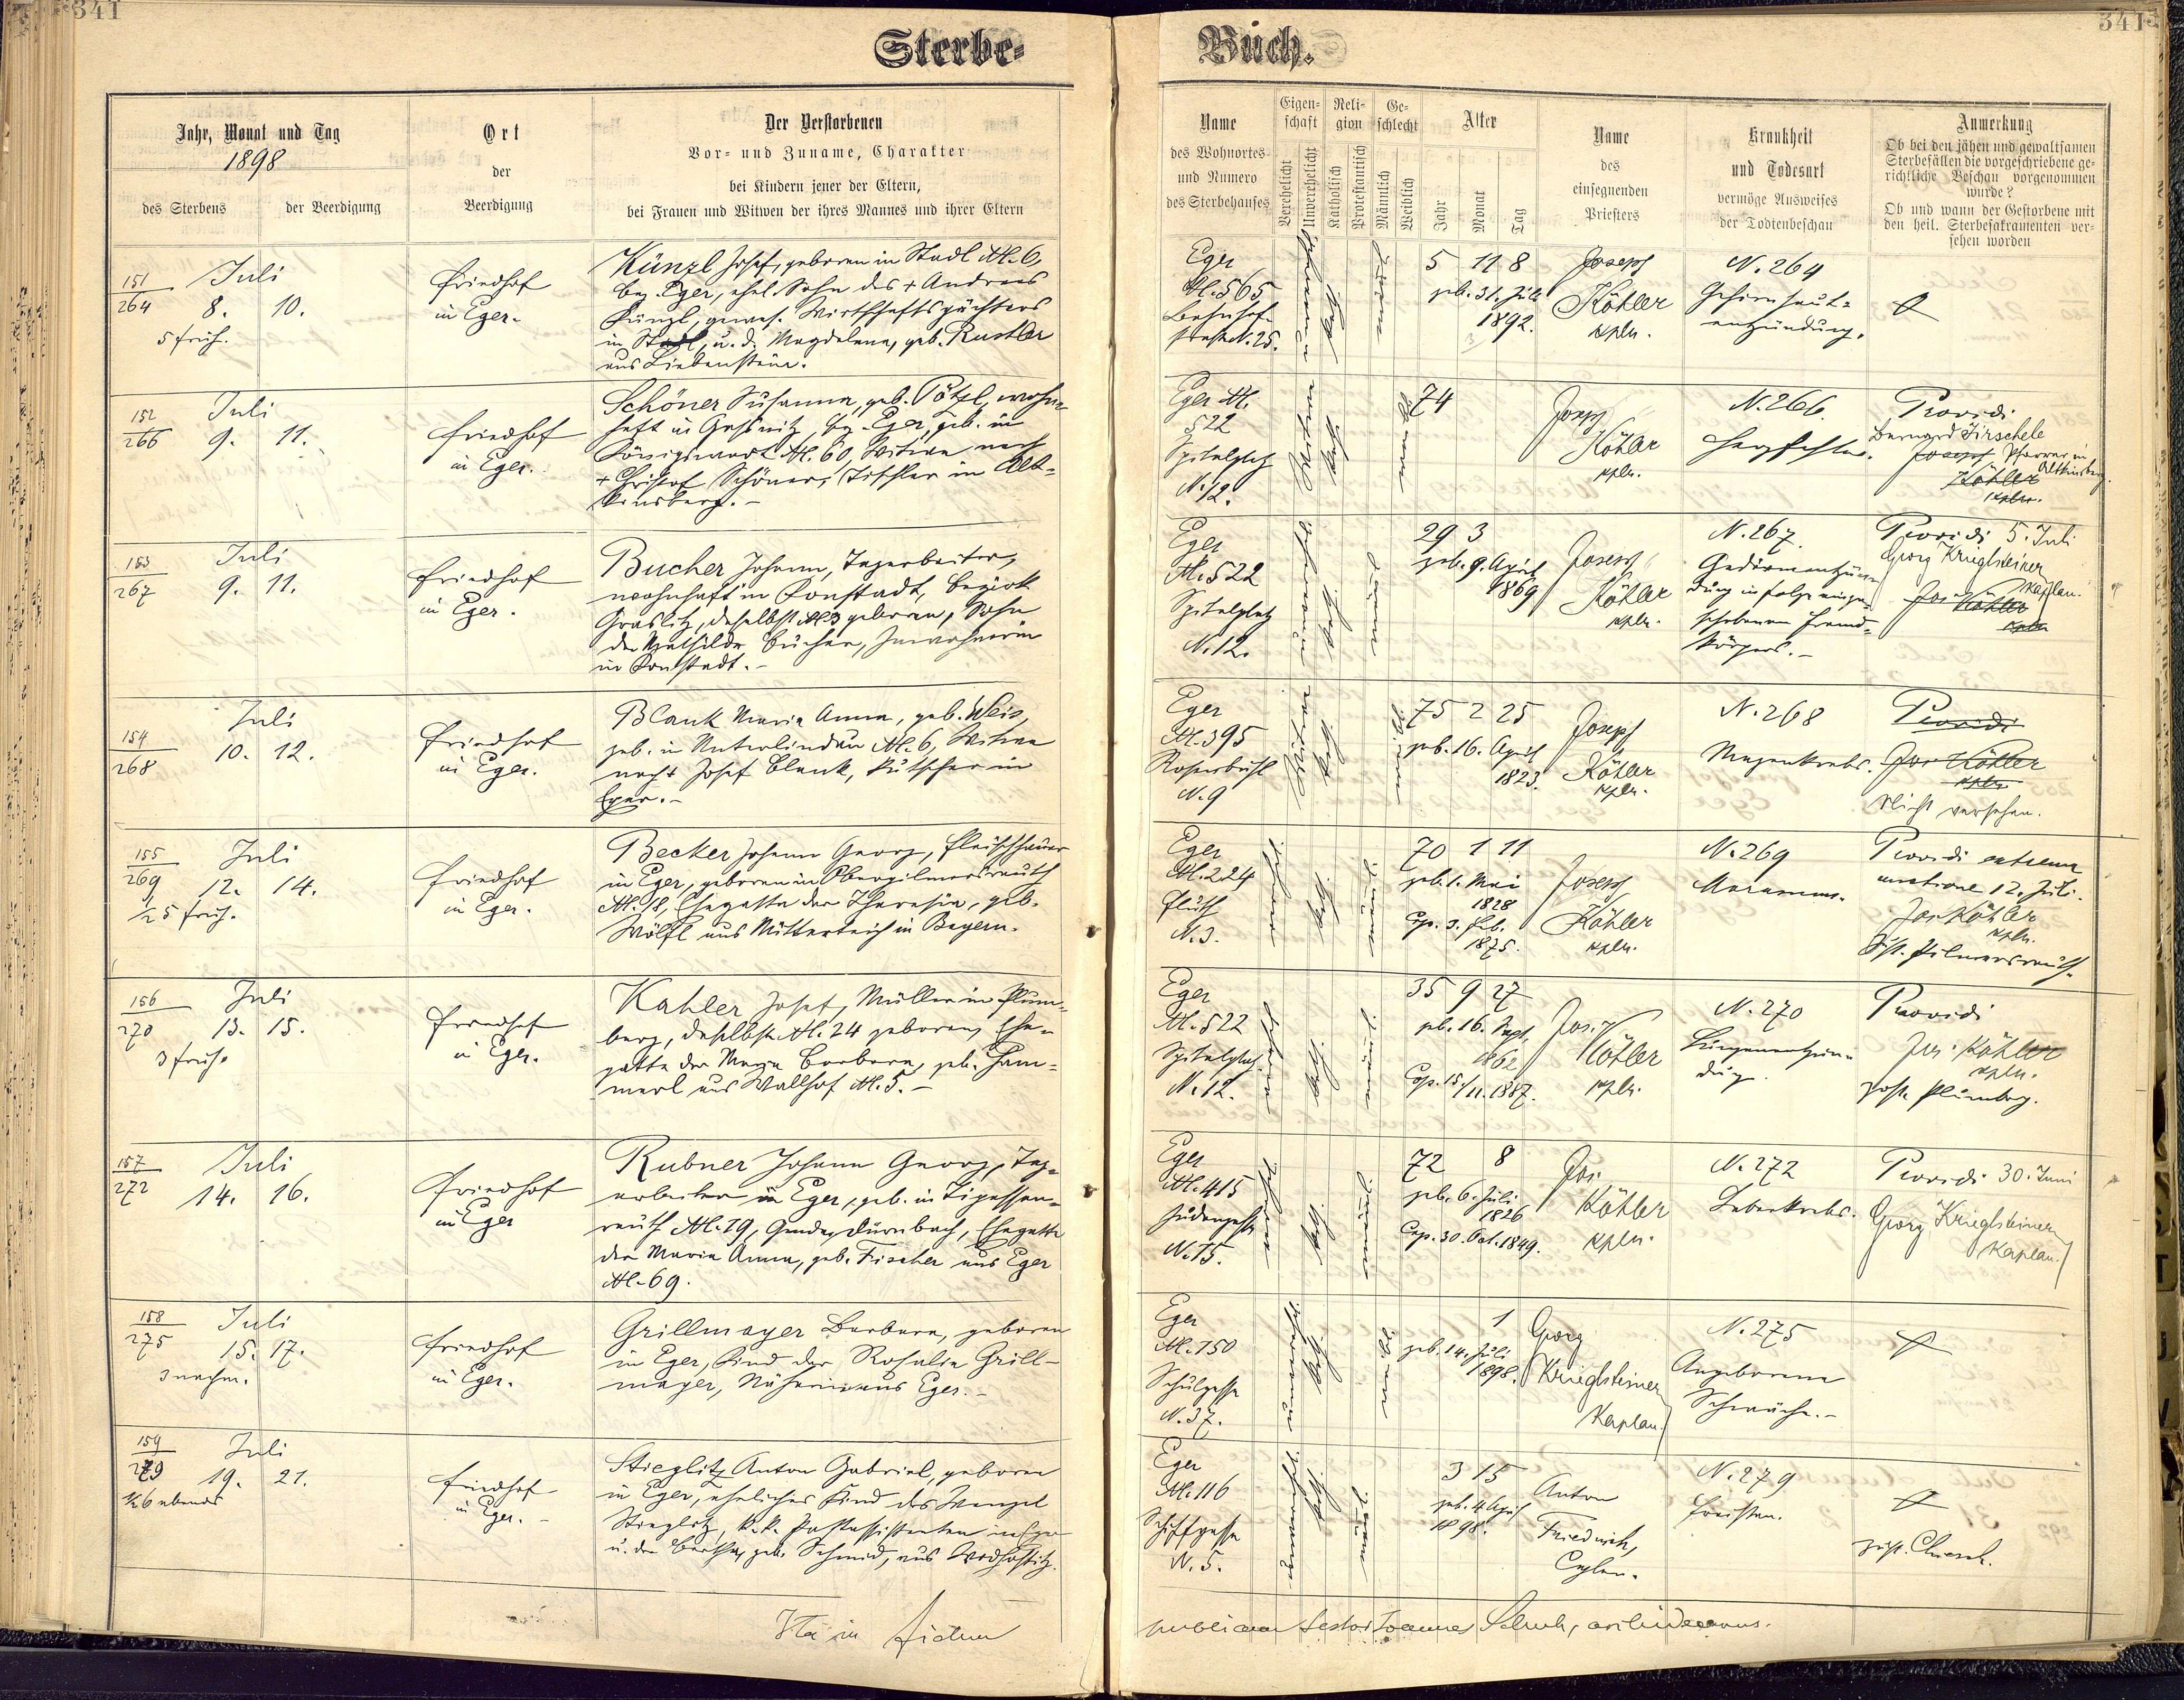 341
Sterbe-
Jahr, Monat und Tag
1898
des Sterbens
der Beerdigung
Ort
der
Beerdigung
Der Verstorbenen
Vor- und Zuname, Charakter
bei Kindern jener der Eltern,
bei Frauen und Witwen der ihres Mannes und ihrer Eltern
151
264
Juli
8. 10.
5 früh.
Friedhof
in Eger.
Künzl Josef, geboren in Stadl N. 6,
bez. Eger, ehel. Sohn des + Andreas
Künzl, gewes. Wirthschaftspächters
in Stadl, u. d. Magdalena, geb. Rustler
aus Liebenstein.
152
266
Juli
9. 11.
Friedhof
in Eger.
Schöner Susanna, geb. Pötzl, wohn-
haft in bez. Eger, geb. in
Königswart N. 60, Witwe nach
+ Christof Schöner, Tischler in Alt-
kinsberg.-
153
267
Juli
9. 11.
Friedhof
in Eger.
Bucher Johann, Tagarbeiter,
wohnhaft in Konstadt, Bezirk
Graslitz, daselbst N. 3 geboren, Sohn
der Mathilde Bucher, Inwohnerin
in Konstadt.-
154
268
Juli
10. 12.
Friedhof
in Eger.
Blank Maria Anna, geb. Weis,
geb. in Unterlindau N. 6, Witwe
nach + Josef Blank, Kutscher in
Eger.-
155
269
Juli
12. 14.
1/2 5 früh.
Friedhof
in Eger.
Becker Johann Georg, Fleischhauer
in Eger, geboren in Oberpilmersreuth
N. 18, Ehegatte der Theresia, geb.
Wölfl aus Mitterteich in Bayern.
156
270
Juli
13. 15.
3 früh.
Friedhof
in Eger.
Kahler Josef, Müller in Plum-
berg, daselbst N. 24 geboren, Ehe-
gatte der Maria Barbara, geb. Ham-
merl aus Wallhof N. 5.-
157
272
Juli
14. 16.
Friedhof
in Eger
Rubner Johann Georg, Tag-
arbeiter in Eger, geb. in Tipessen-
reuth N. 19, Gmde. Dürnbach, Ehegatte
der Maria Anna, geb. Fischer aus Eger
N. 69.
158
275
Juli
15. 17.
3 nachm.
Friedhof
in Eger.
Grillmayer Barbara, geboren
in Eger, Kind der Rosalia Grill-
mayer, Näherin aus Eger.-
159
279
Juli
19. 21.
1/2 6 abends
Friedhof
in Eger.
Stieglitz Anton Gabriel, geboren
in Eger, eheliches Kind des Wenzel
Stieglitz, k. k. Postassistenten in Eger
u. der Bertha, geb. Schmid, aus
Ita in fidem
Buch.
341
Name
des Wohnortes
und Numero
des Sterbehauses
Eigen-
schaft
Verehelicht
Unverehelicht
Reli-
gion
Katholisch
Protestantisch
Ge-
schlecht
Männlich
Weiblich
Alter
Jahr
Monat
Tag
Name
des
einsegnenden
Priesters
Krankheit
und Todesart
vermöge Ausweises
der Todtenbeschau
Anmerkung
Ob bei den jähen und gewaltsamen
Sterbefällen die vorgeschriebene ge-
richtliche Beschau vorgenommen
wurde?
Ob und wann der Gestorbene mit
den heil. Sterbesakramenten ver-
sehen worden
Eger
N. 565
Bahnhof-
straße N. 25.
kath.
5 11 8
geb. 31. Juli
1892.
Joseph
Köhler
kpln.
N. 264
Gehirnhaut-
entzündung.
Eger N.
522
Spitalplatz
N. 12.
Witwe
kath.
74
Joseph
Köhler
kpln.
N. 266.
Herzfehler.
Providi
Bernard Jirschele
Joseph Pfarrer in
Altkinsberg.
Köhler
kpln.
Eger
N. 522
Spitalplatz
N. 12.
kath.
29 3
geb. 9. April
1869
Joseph
Köhler
kpln.
N. 267.
Gedärmentzün-
dung in Folge einge-
schobenen Fremd-
körpers.-
Providi 5. Juli
Georg Krieglsteiner
Kaplan.
Jos Köhler
kpln
Eger
N. 395
Rosenbühl
N. 9
Witwe
kath.
75 2 25
geb. 16. April
1823.
Joseph
Köhler
kpln.
N. 268
Magenkrebs.
Providi
Jos Köhler
kpln
Nicht versehen.
Eger
N. 224
Fluth
N. 3.
kath.
70 1 11
geb. 1. Mai
1828
Cop. 3. Feb.
1875.
Joseph
Köhler
kpln.
N. 269
Marasmus.
Providi extrema
unctione 12. Juli.
Jos Köhler
kpln.
Zust. Pilmersreuth.
Eger
N. 522
Spitalplatz
N. 12.
kath.
35 9 27
geb. 16. Sept.
1862
Cop. 15/11. 1887.
Jos.
Köhler
kpln.
N. 270
Lungenentzün-
dung.
Providi
Jos. Köhler
kpln.
zust. Plumberg.
Eger
N. 415
Judengasse
N. 15.
kath.
72 8
geb. 6. Juli
1826
Cop. 30. Oct. 1849.
Jos.
Köhler
kpln.
N. 272
Leberkrebs.
Providi 30. Juni
Georg Krieglsteiner
Kaplan.
Eger
N. 150
Schulgasse
N. 37.
kath.
1
geb. 14. Juli
1898.
Georg
Krieglsteiner
Kaplan.
N. 275
Angeborene
Schwäche.-
Eger
N. 116
Schiffgasse
N. 5.
kath.
3 15
geb. 4. April
1898.
Anton
Friedrich,
Caplan.
N. 279
Fraisen.
zust. Chiesch.
publicam testor Joannes